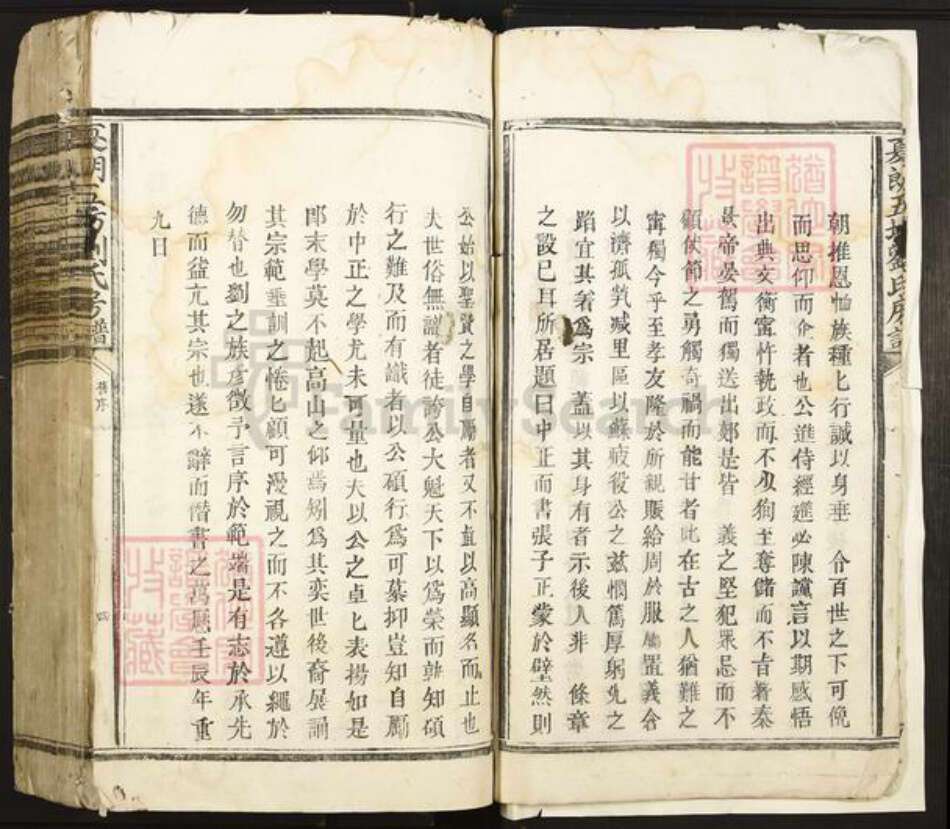 朝推恩恤族種匕行誠以身垂 令百世之下可俛
而思仰而企者也公進侍經筵必陳讜言以期感悟
出典文衡寗忤執政而不私狥至奪儲而不肯署奏
景帝晏駕而獨送出郊是皆 義之堅犯眾忌而不
顧伏節之勇觸奇禍而能甘者此在古之人猶難之
寗獨今乎至孝友隆於所親賑給周於服屬置義倉
以濟孤煢減里區以蘇疲役公之兹憫篤厚躬先之
蹈宜其著為宗 蓋以其身有者示後人非 條章
之設已耳所居題曰中正而書張子正蒙於壁然則
公始以聖賢之學自勵者又不直以高顯名而止也
夫世俗無識者徒誇公大魁天下以為榮而孰知碩
行之難及而有識者以公碩行為可慕抑豈知自勵
於中正之學尤未可量也夫以公之卓匕表揚如是
即末學莫不起高山之仰焉矧為其奕世後裔展誦
其宗範垂訓之惓匕顧可漫視之而不各遵以繩於
勿替也劉之族彥徵予言序於範端是有志於承先
德而益亢其宗也遂不辭而僭書之萬曆壬辰年重
九日
五房劉氏房譜
舊序
FamilySearch
譜學會
收藏